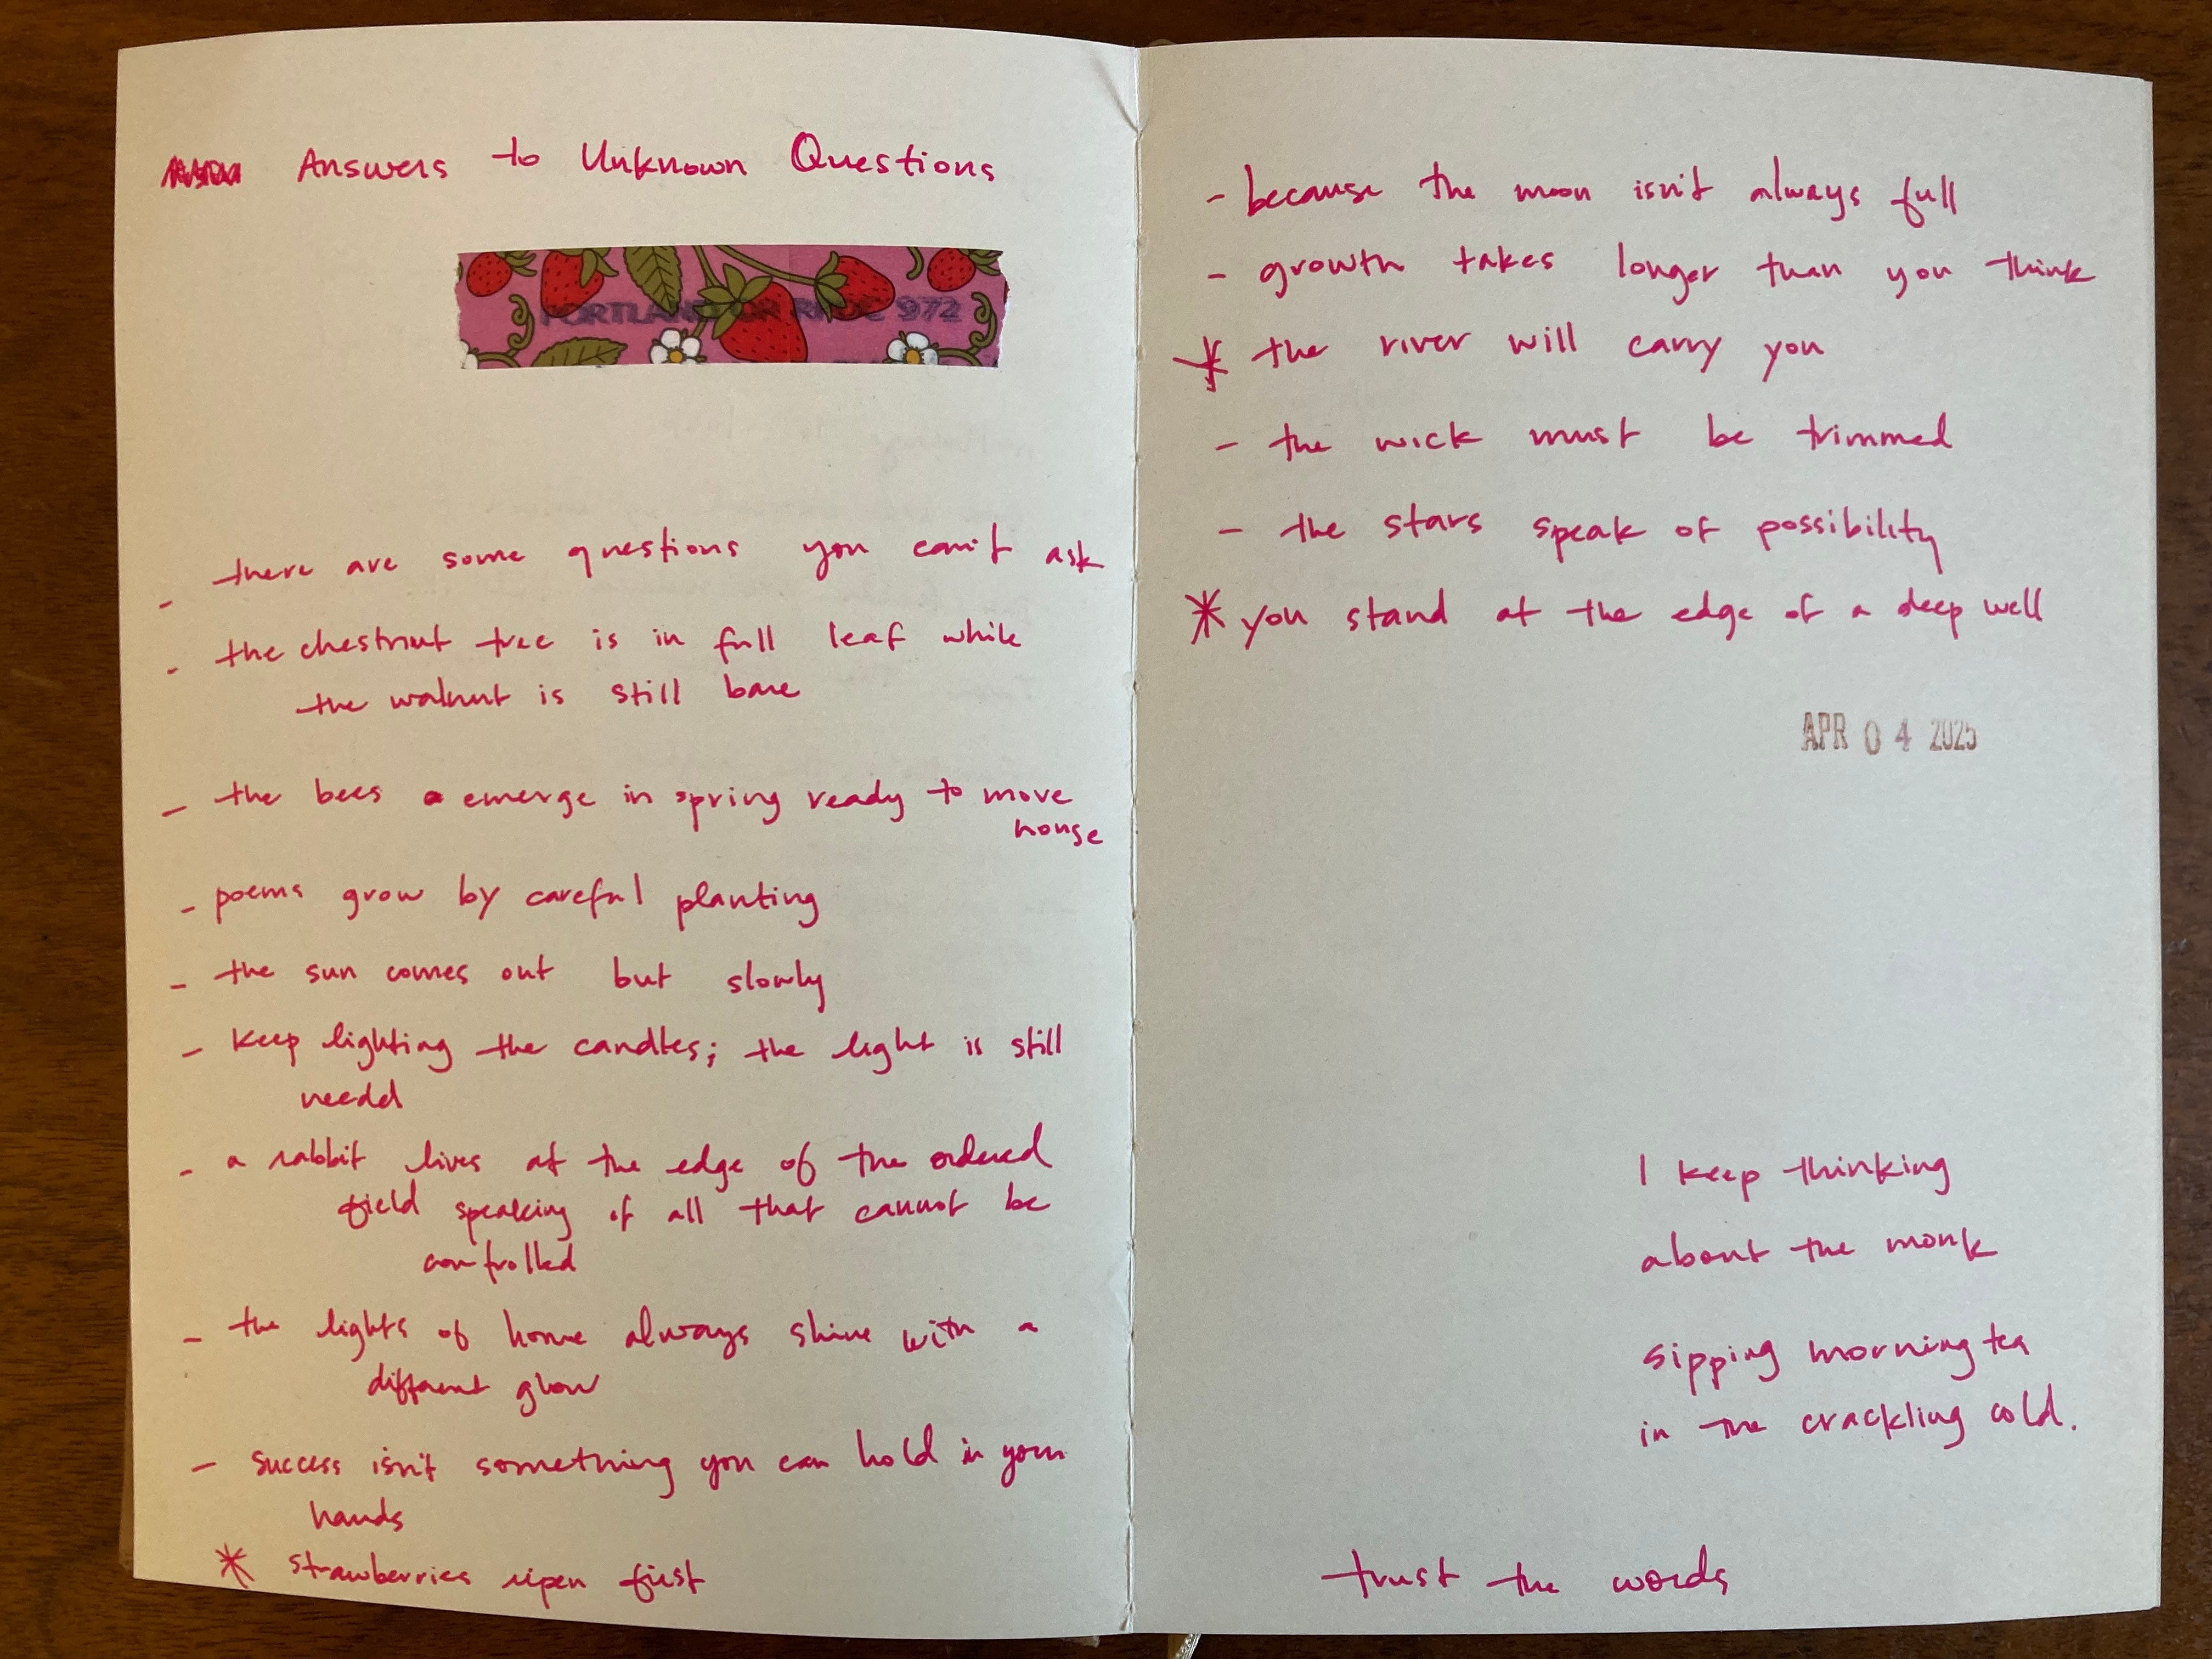 Answers to Unknown Questions
PORTLAND OR RPDC 972
- there are some questions you can't ask
- the chestnut tree is in full leaf while
the walnut is still bare
- the bees emerge in spring ready to move
house
- poems grow by careful planting
- the sun comes out but slowly
- keep lighting the candles; the light is still
needed
- a rabbit lives at the edge of the ordered
field speaking of all that cannot be
controlled
- the lights of home always shine with a
different glow
- success isn't something you can hold in your
hands
* strawberries ripen first
- because the moon isn't always full
- growth takes longer than you think
* the river will carry you
- the wick must be trimmed
- the stars speak of possibility
* you stand at the edge of a deep well
APR 04 2025
I keep thinking
about the monk
sipping morning tea
in the crackling cold.
trust the words